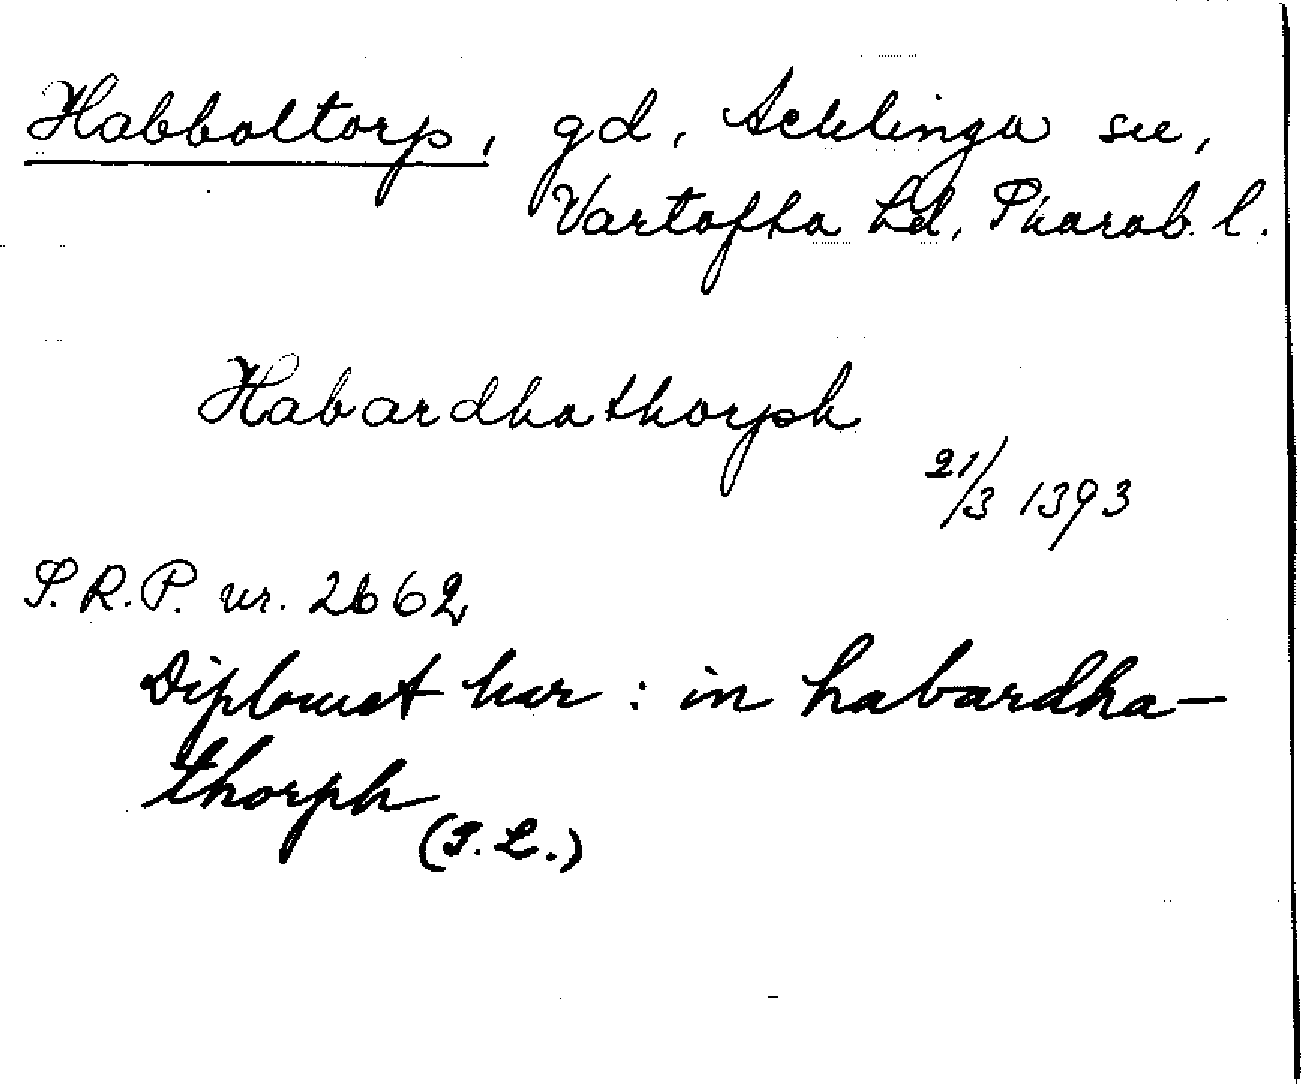 Habboltorp, gd, Acklinga sn,
Vartofta hd, Skarab. l.
Habardhathorph
21/3 1393
S.R.P. nr. 2662
Diplomet har: in habardha-
thorph
(S.L.)